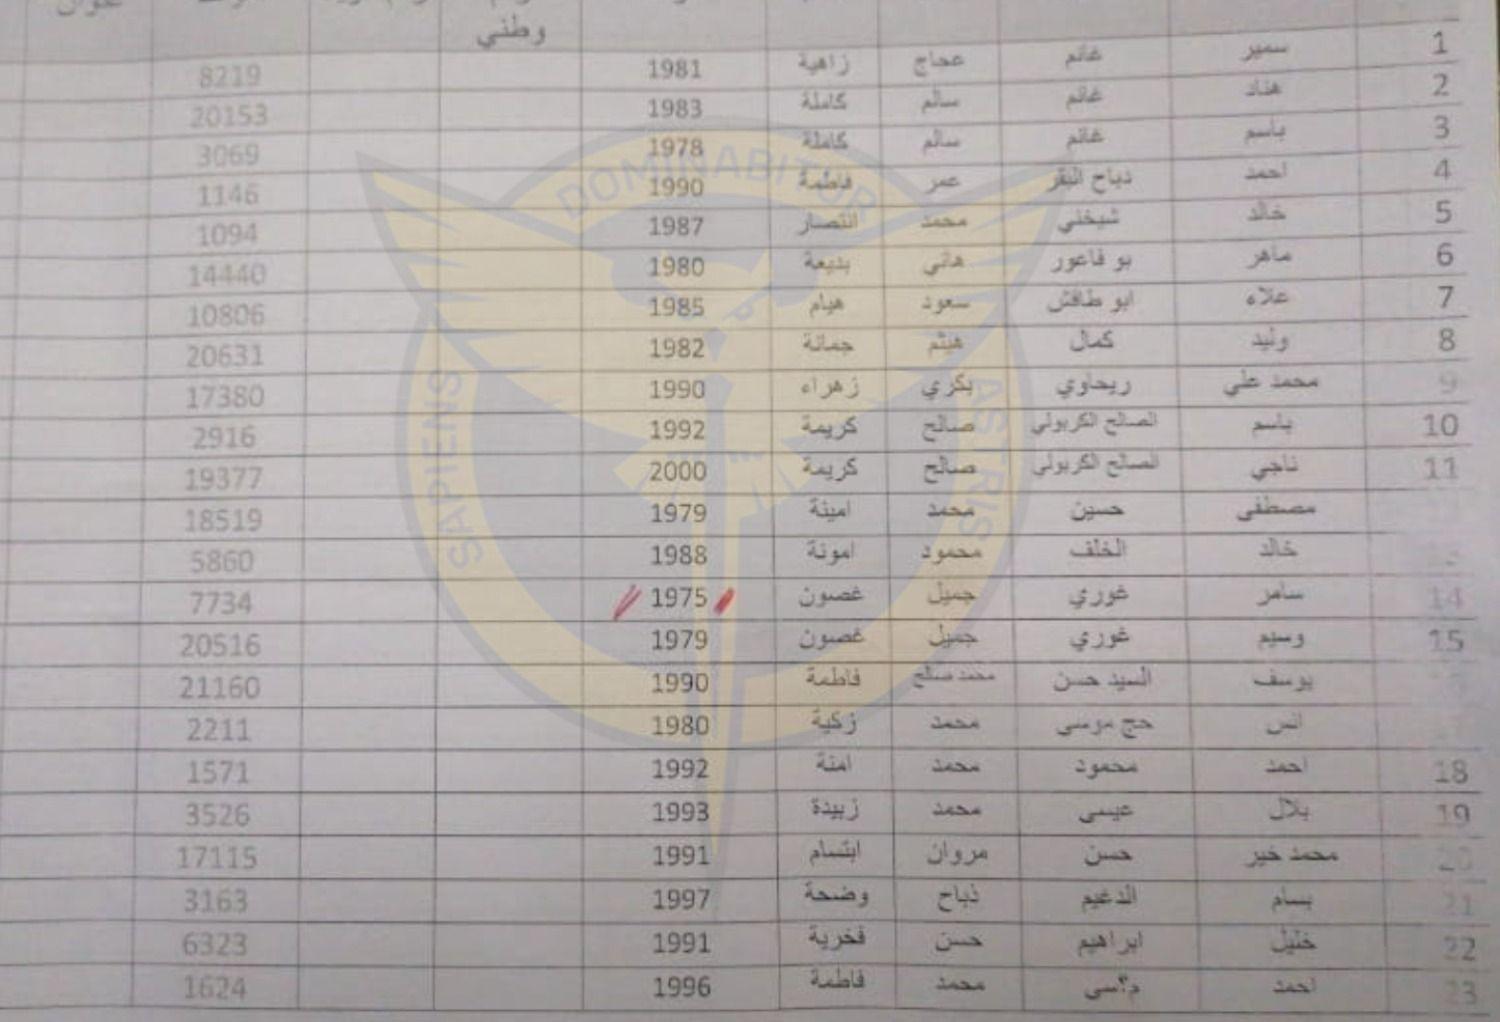 وطني
1 سمير غانم عجاج زاهية 1981 8219
2 هناد غانم سالم كاملة 1983 20153
3 باسم غانم سالم كاملة 1978 3069
4 احمد ذباح البقر عمر فاطمة 1990 1146
5 خالد شيخني محمد انتصار 1987 1094
6 ماهر بو فاعور هاني بديعة 1980 14440
7 علاء ابو طافش سعود هيام 1985 10806
8 وليد كمال هيثم جمانة 1982 20631
9 محمد علي ريحاوي بكري زهراء 1990 17380
10 باسم الصالح الكربولي صالح كريمة 1992 2916
11 ناجي الصالح الكربولي صالح كريمة 2000 19377
مصطفى حسين محمد امينة 1979 18519
خالد الخلف محمود امونة 1988 5860
14 سامر غوري جميل غصون 1975 7734
15 وسيم غوري جميل غصون 1979 20516
يوسف السيد حسن محمد صالح فاطمة 1990 21160
انس حج موسى محمد زكية 1980 2211
18 احمد محمود محمد امنة 1992 1571
19 بلال عيسى محمد زبيدة 1993 3526
20 محمد خير حسن مروان ابتسام 1991 17115
21 بسام الدغيم ذباح وضحة 1997 3163
22 خليل ابراهيم حسن فخرية 1991 6323
23 احمد د؟سي محمد فاطمة 1996 1624
SAPIENS DOMINABITUR ASTRIS